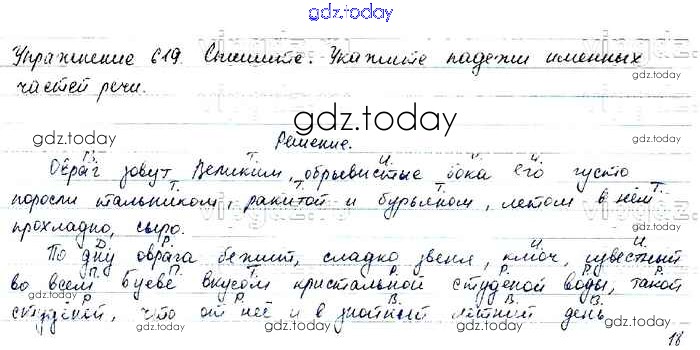 gdz.today
Упражнение 619. Спишите. Укажите падежи именных
частей речи.
gdz.today
gdz.today
gdz.today
Решение.
Овраг зовут Великим, обрывистые бока его густо
поросли тальником, ракитой и бурьяном, летом в нём
прохладно, сыро.
По дну оврага бежит, сладко звеня, ключ, известный
во всем Буеве вкусом кристальной студеной воды, такой
студеной, что от неё и в знойный летний день
gdz.today
gdz.today
gdz.today
18